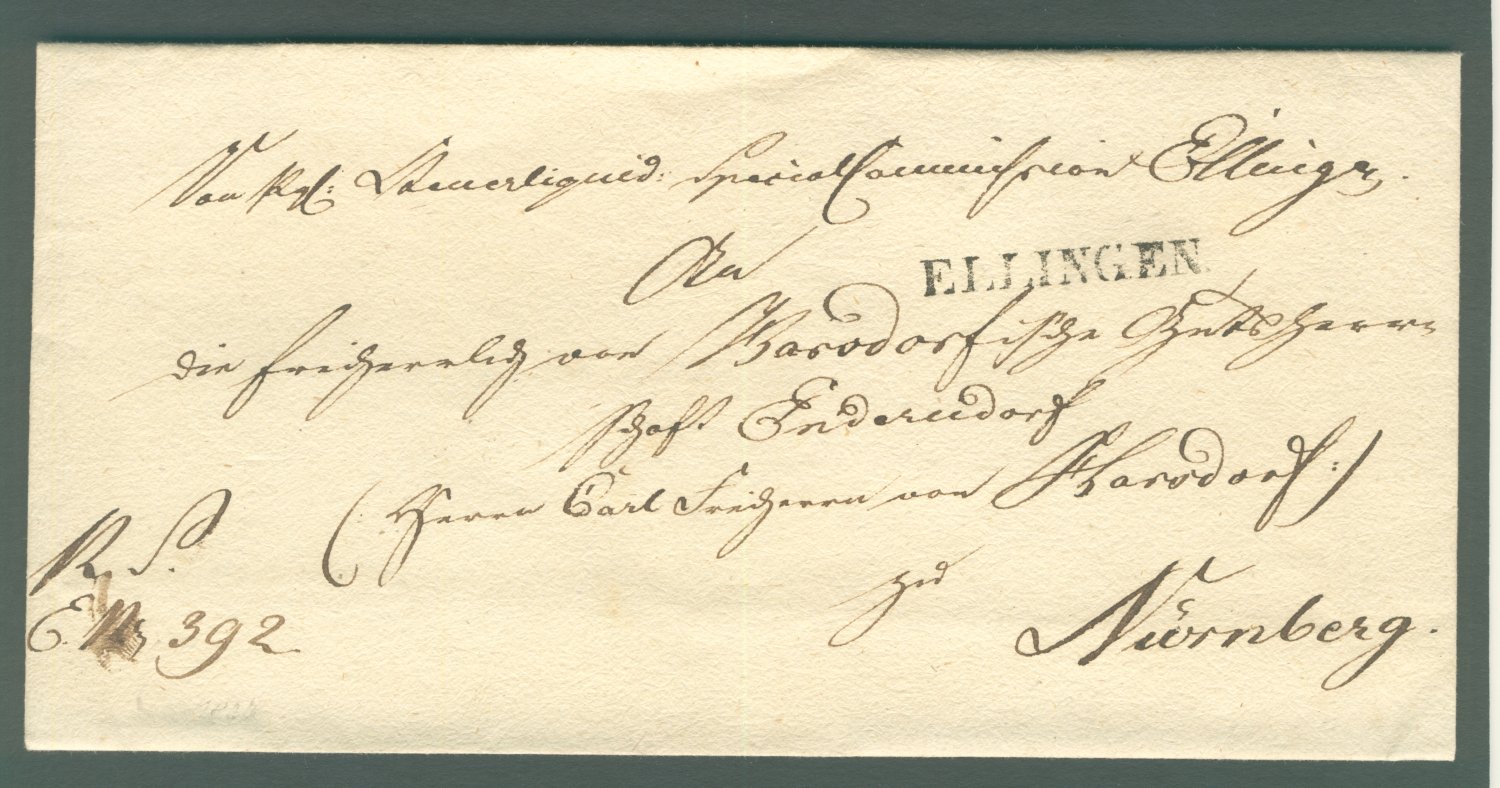 Von Kgl: Steuerliquid: Special Commission Ellingen.
An
ELLINGEN
die freiherrlich von Harsdorfische Gutsherrn
schaft Enderndorf
(: Herrn Carl Freiherrn von Harsdorf :)
zu
Nürnberg.
R. S.
E. Nr 392